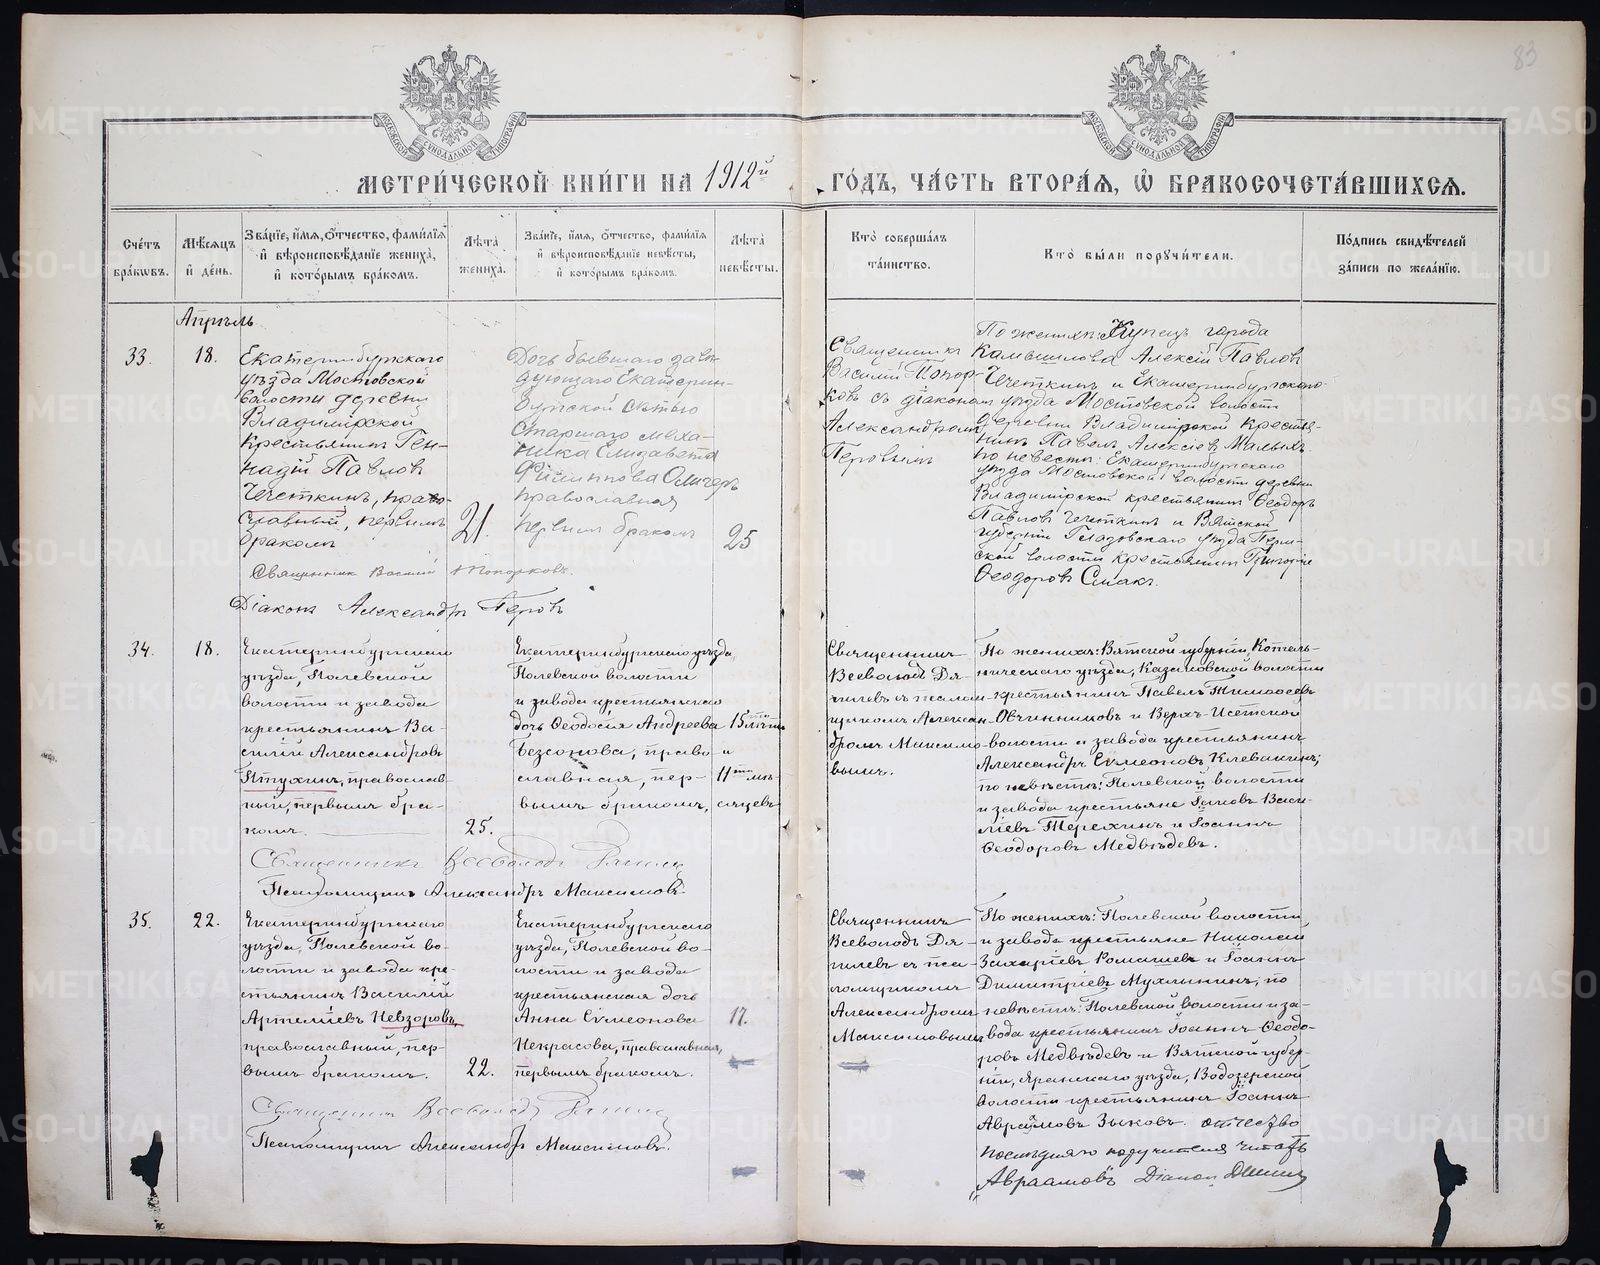 83
МОСКОВСКОЙ СѴНОДАЛЬНОЙ ТИПОГРАФІИ
МОСКОВСКОЙ СѴНОДАЛЬНОЙ ТИПОГРАФІИ
МЕТРИ́ЧЕСКОЙ КНИ́ГИ НА 1912й
ГО́ДЪ, ЧА́СТЬ ВТОРА́Я, Ѡ БРАКОСОЧЕТА́ВШИХСЯ.
Сче́тъ бра́кѡвъ.
Мѣ́сяцъ и де́нь.
Зва́нїе, и́мя, ѻ́тчество, фами́лїя и вѣроисповѣ́данїе жениха̀, и кото́рымъ бра́комъ.
Лѣ́та жениха̀.
Зва́нїе, и́мя, ѻ́тчество, фами́лїя и вѣроисповѣ́данїе невѣ́сты, и кото́рымъ бра́комъ.
Лѣ́та невѣ́сты.
Кто̀ соверша́лъ та́инство.
Кто̀ бы́ли порꙋчи́тели.
По́дпись свидѣ́телей за́писи по жела́нїю.
Апрѣль
33.
18.
Екатеринбургскаго
уѣзда Мостовской
волости деревни
Владимірской
крестьянинъ Ген-
надій Павловъ
Чечеткинъ, право-
славный, первымъ
бракомъ
21.
Дочь бывшаго завѣ-
дующаго Екатерин-
бургской сѣтью
старшаго меха-
ника Елизавета
Филиппова
православная
первымъ бракомъ
25
Священникъ
Василій Попор-
ковъ съ діакономъ
Александромъ
Перовымъ
По женихѣ: Купецъ города
Камышлова Алексѣй Павловъ
Чечеткинъ и Екатеринбургскаго
уѣзда Мостовской волости
деревни Владимірской крестья-
нинъ Павелъ Алексѣевъ Малыхъ
по невѣстѣ: Екатеринбургскаго
уѣзда Мостовской волости деревни
Владимірской крестьянинъ Ѳеодоръ
Павловъ Чечеткинъ и Вятской
губерніи Глазовскаго уѣзда
ской волости крестьянинъ Григорій
Ѳеодоровъ
Священникъ Василій Попорковъ.
Діаконъ Александръ Перовъ
34.
18.
Екатеринбургскаго
уѣзда, Полевской
волости и завода
крестьянинъ Ва-
силій Александровъ
Пѣтухинъ, православ-
ный, первымъ бра-
комъ.
25.
Екатеринбургскаго уѣзда,
Полевской волости
и завода крестьянская
дочь Ѳеодосія Андреева
Безсонова, право-
славная, пер-
вымъ бракомъ,
15ти лѣтъ
и
11ти мѣ-
сяцевъ
Священникъ
Всеволодъ Дя-
гилевъ съ псалом-
щикомъ Алексан-
дромъ Максимо-
вымъ.
По женихѣ: Вятской губерніи, Котель-
ническаго уѣзда, Казаковской волости
крестьянинъ Павелъ Тимоѳеевъ
Овчинниковъ и Верхъ-Исетской
волости и завода крестьянинъ
Александръ Сѵмеоновъ Клевакинъ;
по невѣстѣ: Полевской волости
и завода крестьяне Іаковъ Васи-
ліевъ Терехинъ и Іоаннъ
Ѳеодоровъ Медвѣдевъ.
Священникъ Всеволодъ Дягилевъ
Псаломщикъ Александръ Максимовъ.
35.
22.
Екатеринбургскаго
уѣзда, Полевской во-
лости и завода кре-
стьянинъ Василій
Артеміевъ Невзоровъ,
православный, пер-
вымъ бракомъ.
22.
Екатеринбургскаго
уѣзда, Полевской во-
лости и завода
крестьянская дочь
Анна Сѵмеонова
Некрасова, православная,
первымъ бракомъ.
17.
Священникъ
Всеволодъ Дя-
гилевъ съ пса-
ломщикомъ
Александромъ
Максимовымъ
По женихѣ: Полевской волости
и завода крестьяне Николай
Захаріевъ Ромашевъ и Іоаннъ
Димитріевъ Мухлынинъ; по
невѣстѣ: Полевской волости и за-
вода крестьянинъ Іоаннъ Ѳеодо-
ровъ Медвѣдевъ и Вятской губер-
ніи, Яранскаго уѣзда, Водозерской
волости крестьянинъ Іоаннъ
Авраамовъ Зыковъ. отчество
послѣдняго поручителя читать
"Авраамовъ" Діаконъ
Священникъ Всеволодъ Дягилевъ
Псаломщикъ Александръ Максимовъ.
METRIKI.GASO-URAL.RU